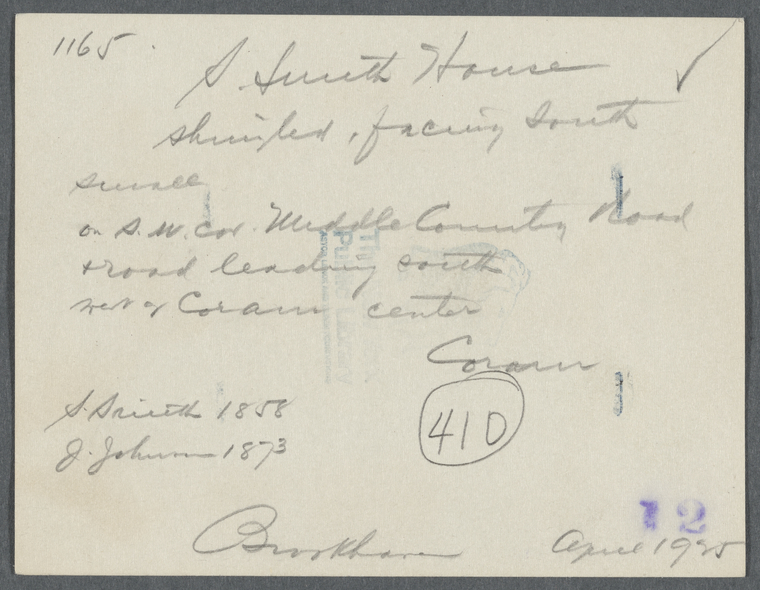 1165
S. Smith House
shingled, facing South
small
on S.W. cor. Middle Country Road
+ road leading south
west of Coram center
Coram
S. Smith 1858
J. Johnson 1873
41D
12
Brookhaven April 1925